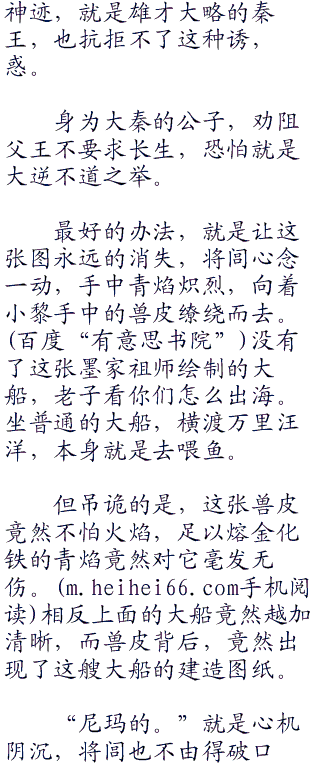 神迹，就是雄才大略的秦
王，也抗拒不了这种诱，
惑。
身为大秦的公子，劝阻
父王不要求长生，恐怕就是
大逆不道之举。
最好的办法，就是让这
张图永远的消失，将闾心念
一动，手中青焰炽烈，向着
小黎手中的兽皮缭绕而去。
(百度“有意思书院”)没有
了这张墨家祖师绘制的大
船，老子看你们怎么出海。
坐普通的大船，横渡万里汪
洋，本身就是去喂鱼。
但吊诡的是，这张兽皮
竟然不怕火焰，足以熔金化
铁的青焰竟然对它毫发无
伤。(m.heihei66.com手机阅
读)相反上面的大船竟然越加
清晰，而兽皮背后，竟然出
现了这艘大船的建造图纸。
“尼玛的。”就是心机
阴沉，将闾也不由得破口